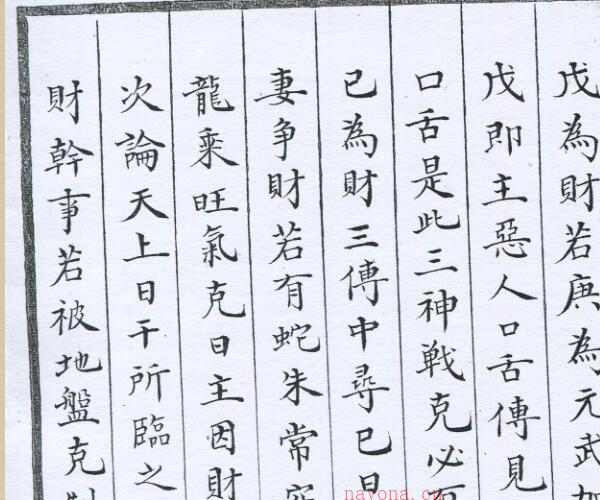 戊為財若庚為元武加
戊即主惡人口舌傳見
口舌是此三神戰克必
已為財三傳中尋已日
妻爭財若有蛇朱常
龍乘旺氣克日主因財
次論天上日干所臨之
財幹事若被地盤克制
nayona.cn